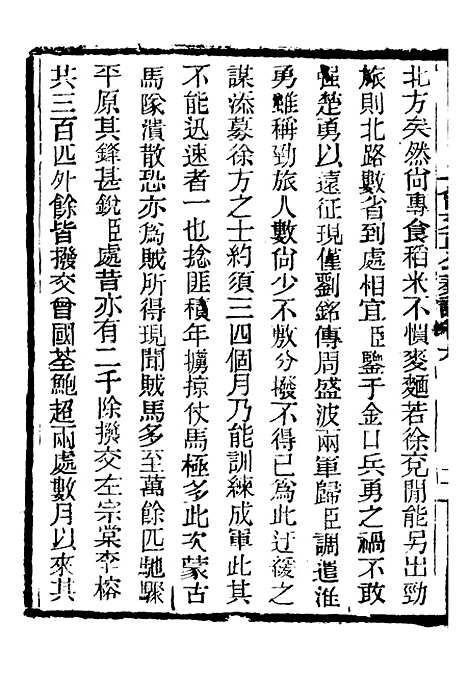 北方矣然尙專食稻米不慣麥麵若徐兗閒能另出勁
旅則北路數省到處相宜臣鑒于金口兵勇之禍不敢
强楚勇以遠征現僅劉銘傳周盛波兩軍歸臣調遣淮
勇雖稱勁旅人數尙少不敷分撥不得已爲此迂緩之
謀添募徐方之士約須三四個月乃能訓練成軍此其
不能迅速者一也捻匪積年擄掠仗馬極多此次蒙古
馬隊潰散恐亦爲賊所得現聞賊馬多至萬餘匹馳驟
平原其鋒甚銳臣處昔亦有二千除撥交左宗棠李榕
共三百匹外餘皆撥交曾國荃鮑超兩處數月以來其